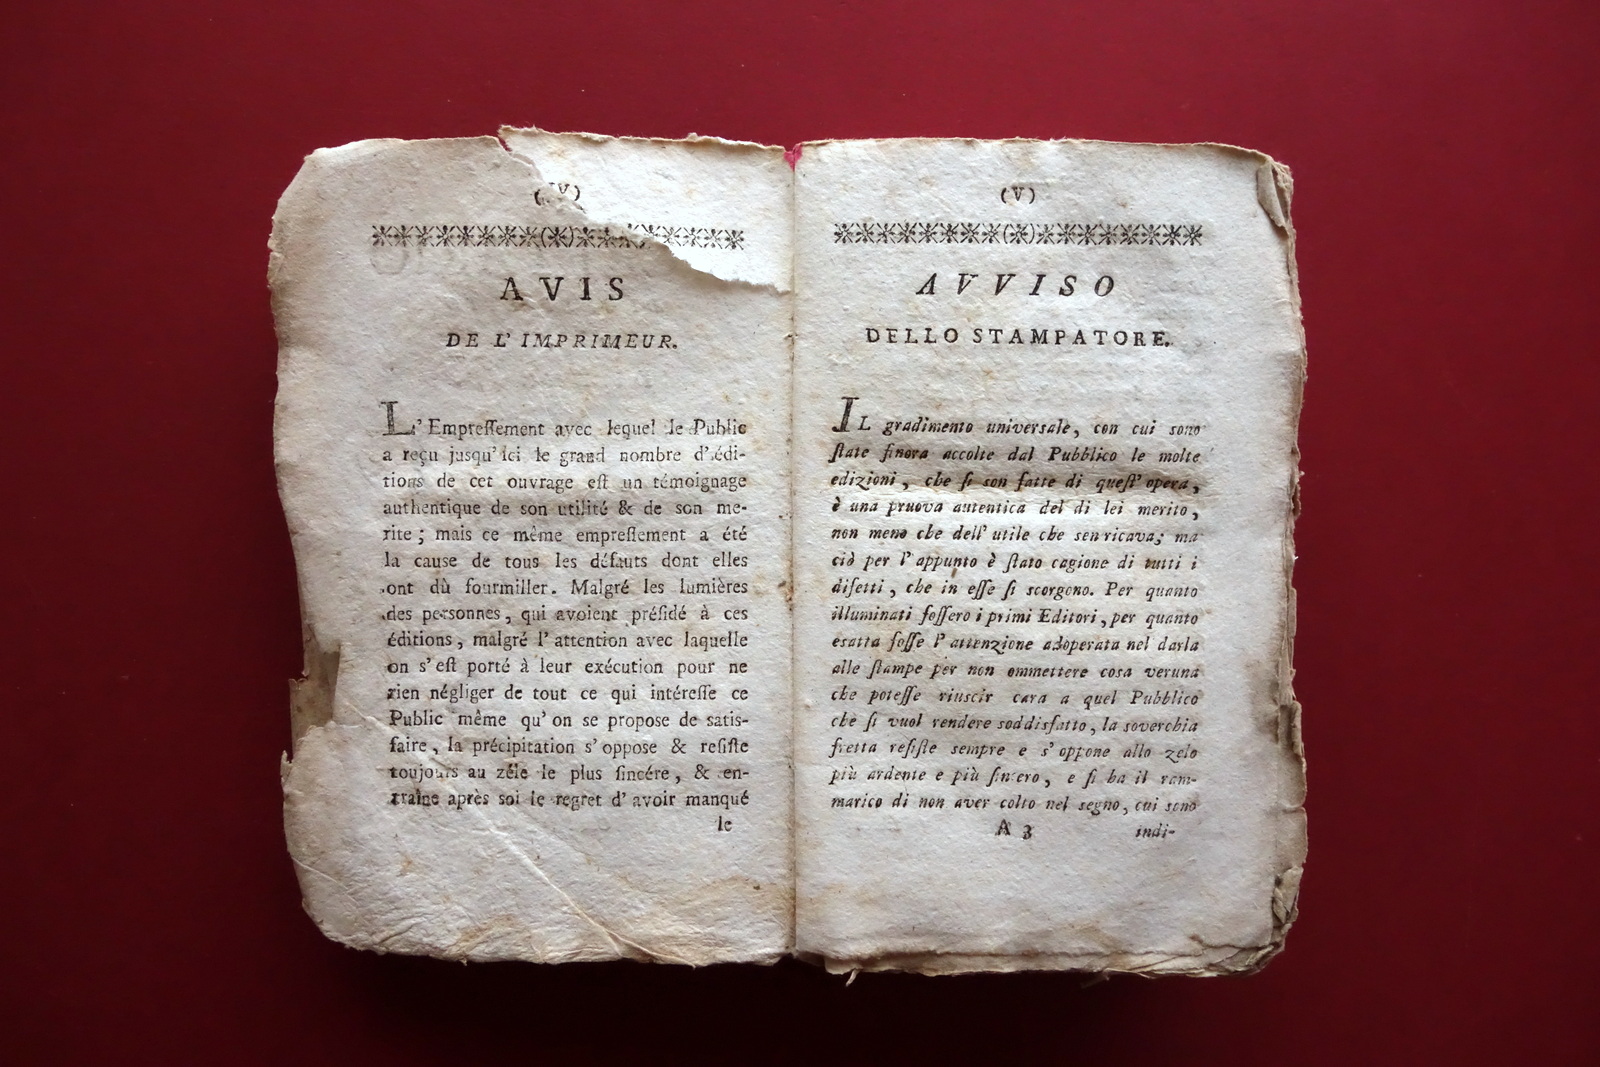 (IV)
AVIS
DE L' IMPRIMEUR.
L' Empreſſement avec lequel le Public
a reçu jusqu' ici le grand nombre d' édi-
tions de cet ouvrage eſt un témoignage
authentique de son utilité & de son me-
rite ; mais ce même empreſſement a été
la cause de tous les défauts dont elles
ont dû fourmiller. Malgré les lumières
des personnes, qui avoient préſidé à ces
éditions, malgré l' attention avec laquelle
on s' eſt porté à leur exécution pour ne
rien négliger de tout ce qui intéreſſe ce
Public même qu' on se propose de satis-
faire, la précipitation s' oppose & reſiſte
toujours au zéle le plus ſincére, & en-
traîne après soi le regret d' avoir manqué
le
(V)
AVVISO
DELLO STAMPATORE.
IL gradimento universale, con cui sono
ſtate finora accolte dal Pubblico le molte
edizioni, che ſi son fatte di queſt' opera,
è una pruova autentica del di lei merito,
non meno che dell' utile che sen ricava; ma
ciò per l' appunto è ſtato cagione di tutti i
difetti, che in eſſe ſi scorgono. Per quanto
illuminati foſſero i primi Editori, per quanto
esatta foſſe l' attenzione adoperata nel darla
alle ſtampe per non ommettere cosa veruna
che poteſſe riuscir cara a quel Pubblico
che ſi vuol rendere soddisfatto, la soverchia
fretta reſiſte sempre e s' oppone allo zelo
più ardente e più ſincero, e ſi ha il ram-
marico di non aver colto nel segno, cui sono
A 3 indi-